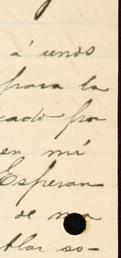 á unos
para la
cado por
en mi
Esperan
de
blar so-